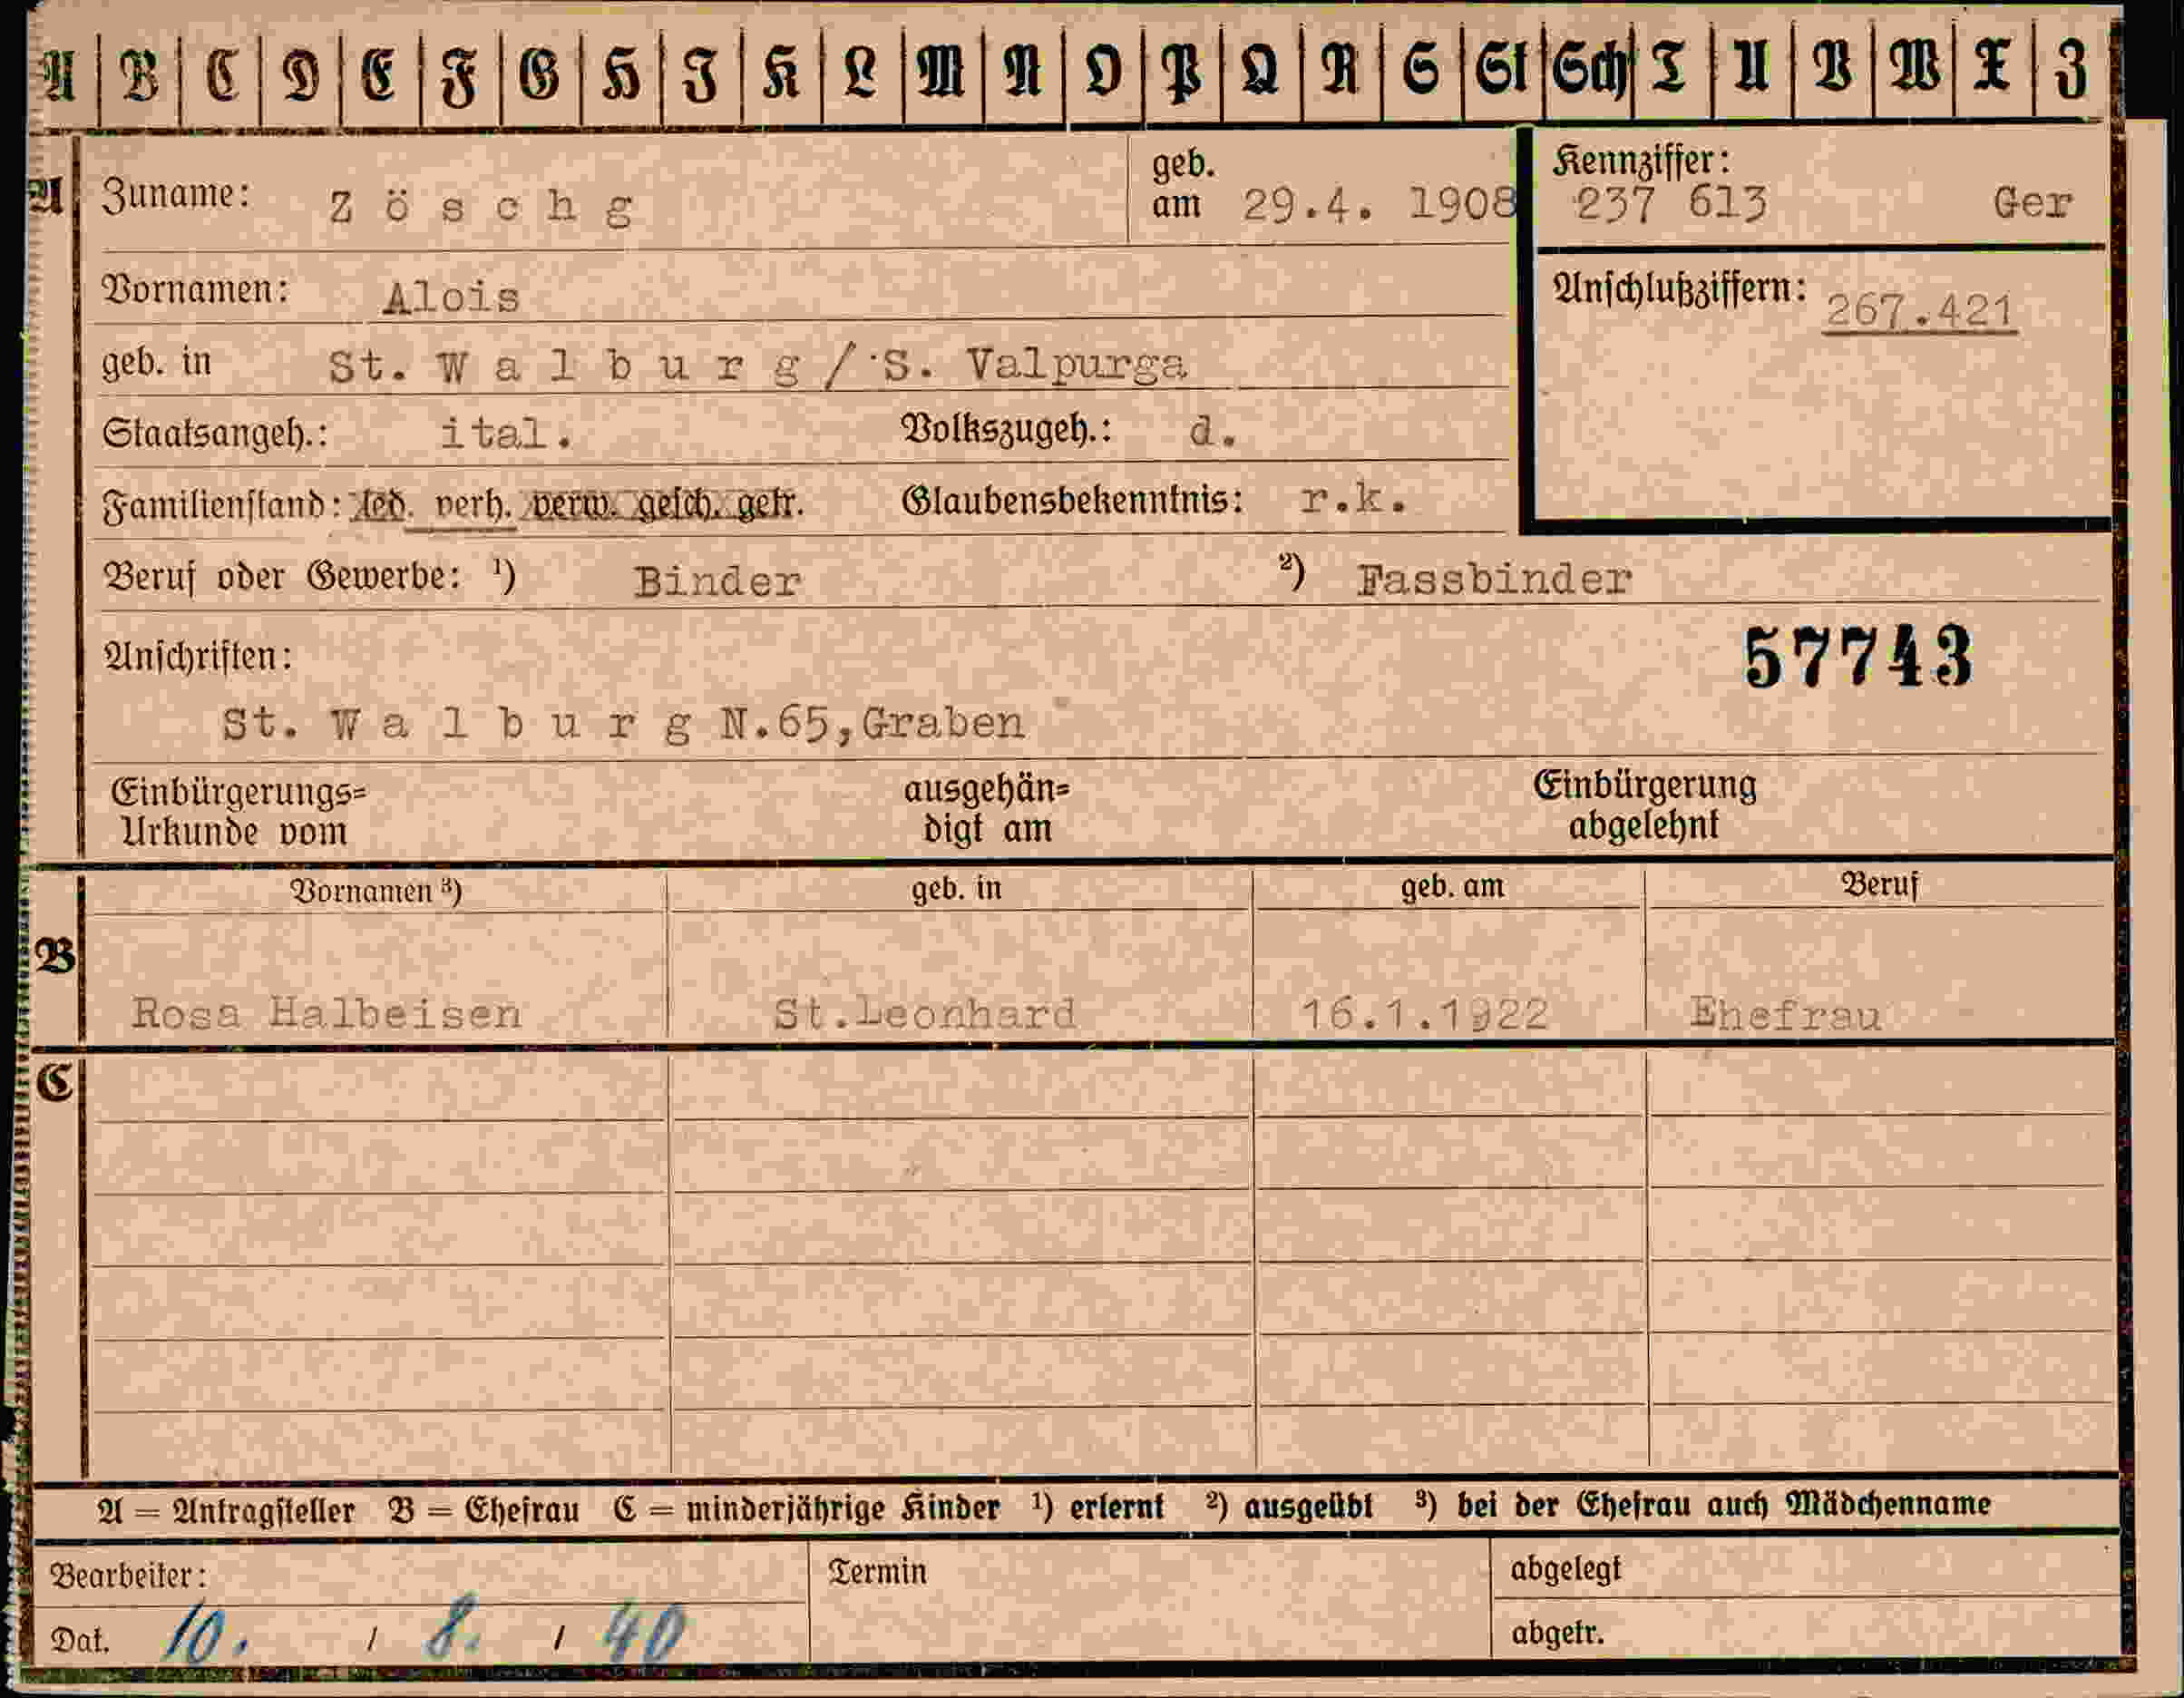 A B C D E F G H I K L M N O P Q R S St Sch T U V W X Z
A Zuname: Z ö s c h g geb. am 29.4. 1908 Kennziffer: 237 613 Ger
Vornamen: Alois Anschlußziffern: 267.421
geb. in St. W a l b u r g / S. Valpurga
Staatsangeh.: ital. Volkszugeh.: d.
Familienstand: led. verh. verw. gesch. getr. Glaubensbekenntnis: r.k.
Beruf oder Gewerbe: ¹) Binder ²) Fassbinder
Anschriften: 57743
St. W a l b u r g N.65,Graben
Einbürgerungs= ausgehän= Einbürgerung
Urkunde vom digt am abgelehnt
Vornamen ³) geb. in geb. am Beruf
B
Rosa Halbeisen St.Leonhard 16.1.1922 Ehefrau
C
A = Antragsteller B = Ehefrau C = minderjährige Kinder ¹) erlernt ²) ausgeübt ³) bei der Ehefrau auch Mädchenname
Bearbeiter: Termin abgelegt
Dat. 10. / 8. / 40 abgetr.